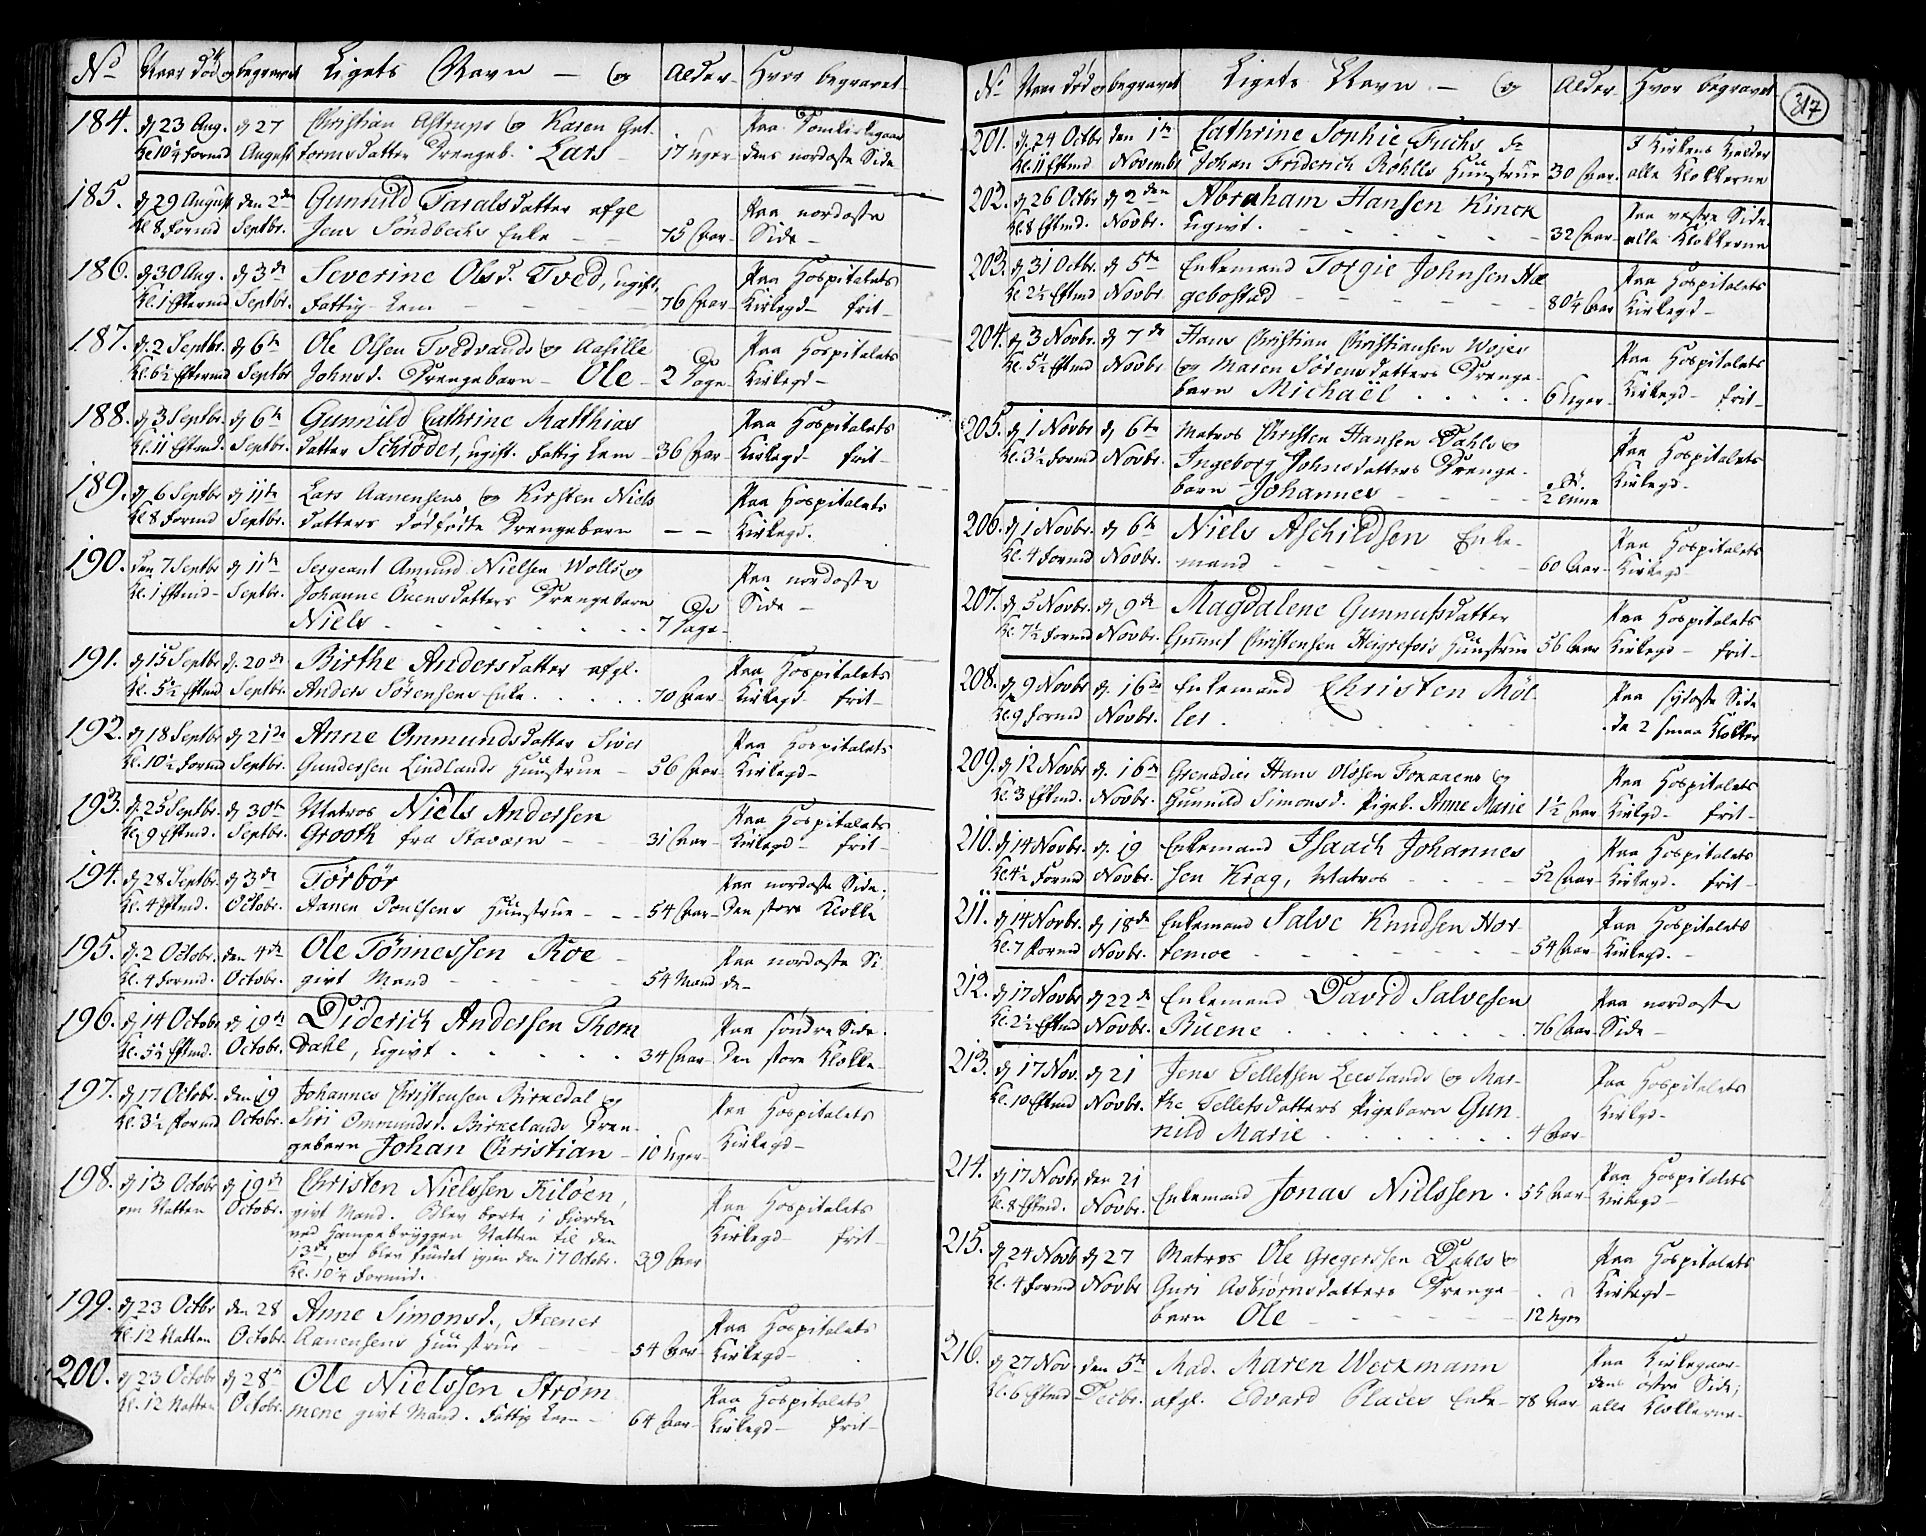 No Naar død og begravet Ligets Navn — og Alder Hvor begravet
184. d 23 Aug. d 27 Christian Astrups og Karen Gut-
Kl 10¼ Formd August tormsdatter Drengeb. Lars 17 Uger
Paa Domkirkegaar
dens nordøste Side
185. d 29 August den 2de Gunnild Taralsdatter afgl
Kl 8 Formd Septbr. Jens Söndbecks Enke — 75 Aar
Paa nordøste
Side —
186. d 30 Aug. d 3de Severine Olsd. Tved, ugift,
Kl. 1 Eftermd Septbr. Fattig Lem — — — 76 Aar
Paa Hospitalets
Kirkegd — frit —
187. d 2 Septbr. d 6te Ole Olsen Tvedvands og Aasille
Kl. 6½ Eftermd Septbr Johnsd. Drengebarn — Ole — 2 Dage
Paa Hospitalets
Kirkegd —
188. d 3 Septbr. d 6te Gunnild Cathrine Matthias
Kl. 11 Eftmd. Septbr. datter Schrøder, ugift. Fattig Lem — 36 Aar
Paa Hospitalets
Kirkegd — frit —
189. d 6 Septbr d 11te Lars Aanensens og Kirsten Niels
Kl 8 Formd Septbr. datters dødfødte Drengebarn — —
Paa Hospitalets
Kirkegd.
190. den 7 Septbr d 11te Sergeant Amund Nielsen Wolls og
Kl. 1 Eftmd — Septbr. Johanne Ouensdatters Drengebarn
Niels . . . . . . 7 Dage
Paa nordøste
Side —
191. d 15 Septbr d. 20de Birthe Andersdatter afgl.
Kl. 5½ Eftmd Septbr. Anders Sørensens Enke . . . 70 Aar
Paa Hospitalets
Kirkegd frit —
192. d 18 Septbr d 21de Anne Ommundsdatter Siver
Kl. 10½ Formd Septbr. Gundersen Lindlands Huustrue — 56 Aar
Paa Hospitalets
Kirkegd —
193. d. 25 Septbr. d 30te Matros Niels Andersen
Kl. 9 Eftmd. Septbr. Grooth fra Stavern — — 31 Aar
Paa Hospitalets
Kirkegd — frit —
194. d 28 Septbr. d 3de Törbör
Kl. 4 Eftmd. Octobr. Aanen Poulsens Huustrue — — 54 Aar
Paa nordøste Side;
Den store Klokke
195. d. 2 Octobr. den 4de Ole Tönnessen Roe —
Kl. 4 Formd. Octobr. givt Mand — — — — 54 Mand
Paa nordøste Si
de —
196. d 14 Octobr. d 19te Diderich Andersen Thom
Kl. 5½ Eftmd. Octobr. Dahl, ugivt . . . . . 34 Aar
Paa søndre Side.
Den store Klokke
197. d 17 Octobr. den 19 Johannes Christensen Birkedal og
Kl. 3½ Formd Octobr. Siri Ommundsd. Birkelands Dren-
gebarn Johan Christian — 10 Uger
Paa Hospitalets
Kirkegd —
198. d 13 Octobr d 19de Christen Nielssen Kiløen,
om Natten Octobr. givt Mand. Blev borte i Fiorden
ved Hampebryggen Natten til den
13de, og blev fundet igien den 17 Octobr. 39 Aar
Kl. 10¼ Formid.
Paa Hospitalets
Kirkegd — frit —
199. d 23 Octbr den 28 Anne Simonsd., Steener
Kl. 12 Natten Octobr. Aanensens Huustrue — — 54 Aar
Paa Hospitalets
Kirkegd —
200. d 23 Octobr d 28de Ole Nielssen Strøm
Kl. 12 Natten Octobr. mene givt Mand. Fattig Lem — 64 Aar
Paa Hospitalets
Kirkegd — frit —
No Naar død og begravet Ligets Navn — og Alder Hvor begravet 317
201. d. 24 Octbr den 1te Cathrine Sophie Fuchs
Kl. 11 Eftmd Novembr Johan Friderich Röhlls Huustrue 30 Aar.
I Kirkens Kielder
alle Klokkerne
202. d 26 Octbr d 2den Abraham Hansen Kinck
Kl. 8 Eftmd. Novbr. Ugivt. — — — — 32 Aar
Paa vestre Side.
alle Klokkerne
203. d 31 Octbr. d 5te Enkemand Torgie Johnsen Hæ
Kl. 2½ Eftmd Novbr. gebostad — — — — 80¼ Aar
Paa Hospitalets
Kirkegd —
204. d 3 Novbr. d 7de Hans Christian Christiansen Wojes
Kl. 5½ Eftmd Novbr. og Maren Sörensdatters Drenge-
barn Michaël . . . . . 6 Uger
Paa Hospitalets
Kirkegd — frit —
205. d 1 Novbr d 6te Matros Christen Hansen Dahls og
Kl. 3½ Formd Novbr. Ingeborg Johnsdatters Drenge-
barn Johannes — — — 2
Paa Hospitalets
Kirkegd —
206. d 1 Novbr. d 6te Niels Aschildsen Enke-
Kl. 4 Formd Novbr. mand — — — — 60 Aar
Paa Hospitalets
Kirkegd —
207. d 5 Novbr. d 9de Magdalene Gunnufsdatter
Kl. 7½ Formd Novbr. Gunnuf Christensen Heigrefors Huustrue 56 Aar
Paa Hospitalets
Kirkegd — frit —
208. d 9 Novbr d. 16de Enkemand Christen Möl
Kl. 9 Formd Novbr. ler . . . .
Paa sydøste Side
de 2 smaa Klokker
209. d 12 Novbr d. 16de Grenadier Hans Olssen Foraaens og
Kl. 3 Eftmd. Novbr. Gunnild Simonsd. Pigeb. Anne Marie 1½ Aar
Paa Hospitalets
Kirkegd — frit —
210. d 14 Novbr. d. 19 Enkemand Isaach Johannes
Kl. 4½ Formd Novbr. sen Krag, Matros — — — 52 Aar
Paa Hospitalets
Kirkegd. frit —
211. d 14 Novbr. d 18de Enkemand Salve Knudsen Hor-
Kl. 7 Formd Novbr. temoe — — — — 54 Aar
Paa Hospitalets
Kirkegd. —
212. d 17 Novbr d 22de Enkemand David Salvesen
Kl. 2½ Eftmd Novbr. Buene . . . . . . 76 Aar
Paa nordøste
Side —
213. d 17 Nov. d 21 Jens Tellefsen Leeslands og Mar-
Kl. 10 Eftmd Novbr. the Tellefsdatters Pigebarn Gun-
nild Marie . . . . . 4 Aar
Paa Hospitalets
Kirkegd —
214. d 17 Novbr den 21 Enkemand Jonas Nielssen . 55 Aar
Kl. 8 Eftmd. Novbr.
Paa Hospitalets
Kirkegd —
215. d 24 Novb d 27 Matros Ole Gregerssen Dahls og
Kl. 4 Formd Novbr Guri Asbiørnsdatters Drenge-
barn Ole — — — — 12 Uger
Paa Hospitalets
Kirkegd —
216. d 27 Nov. den 5te Mad. Maren Werkmann
Kl. 6 Eftmd Decbr. afgl. Edvard Places Enke — 78 Aar
Paa Kirkegaar-
dens østre Side;
alle Klokkerne —